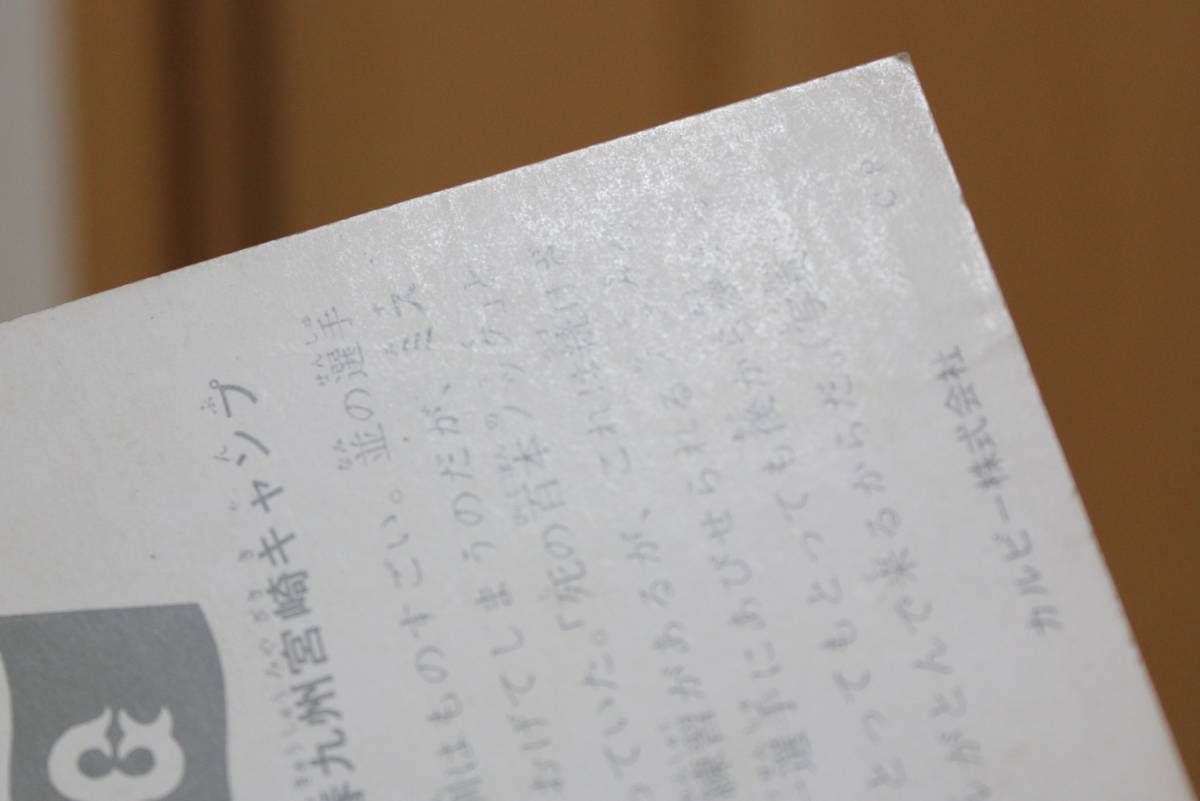 九州宮崎キャンプ
はものすごい。並の選手
おげてしまうのだが、ミス
っていた。「死の百本ノック」と
練習があるが、これは続けざ
選手にあびせられる
とってもとっても後から後
がとんで来るからだ。(写真
カルビー株式会社